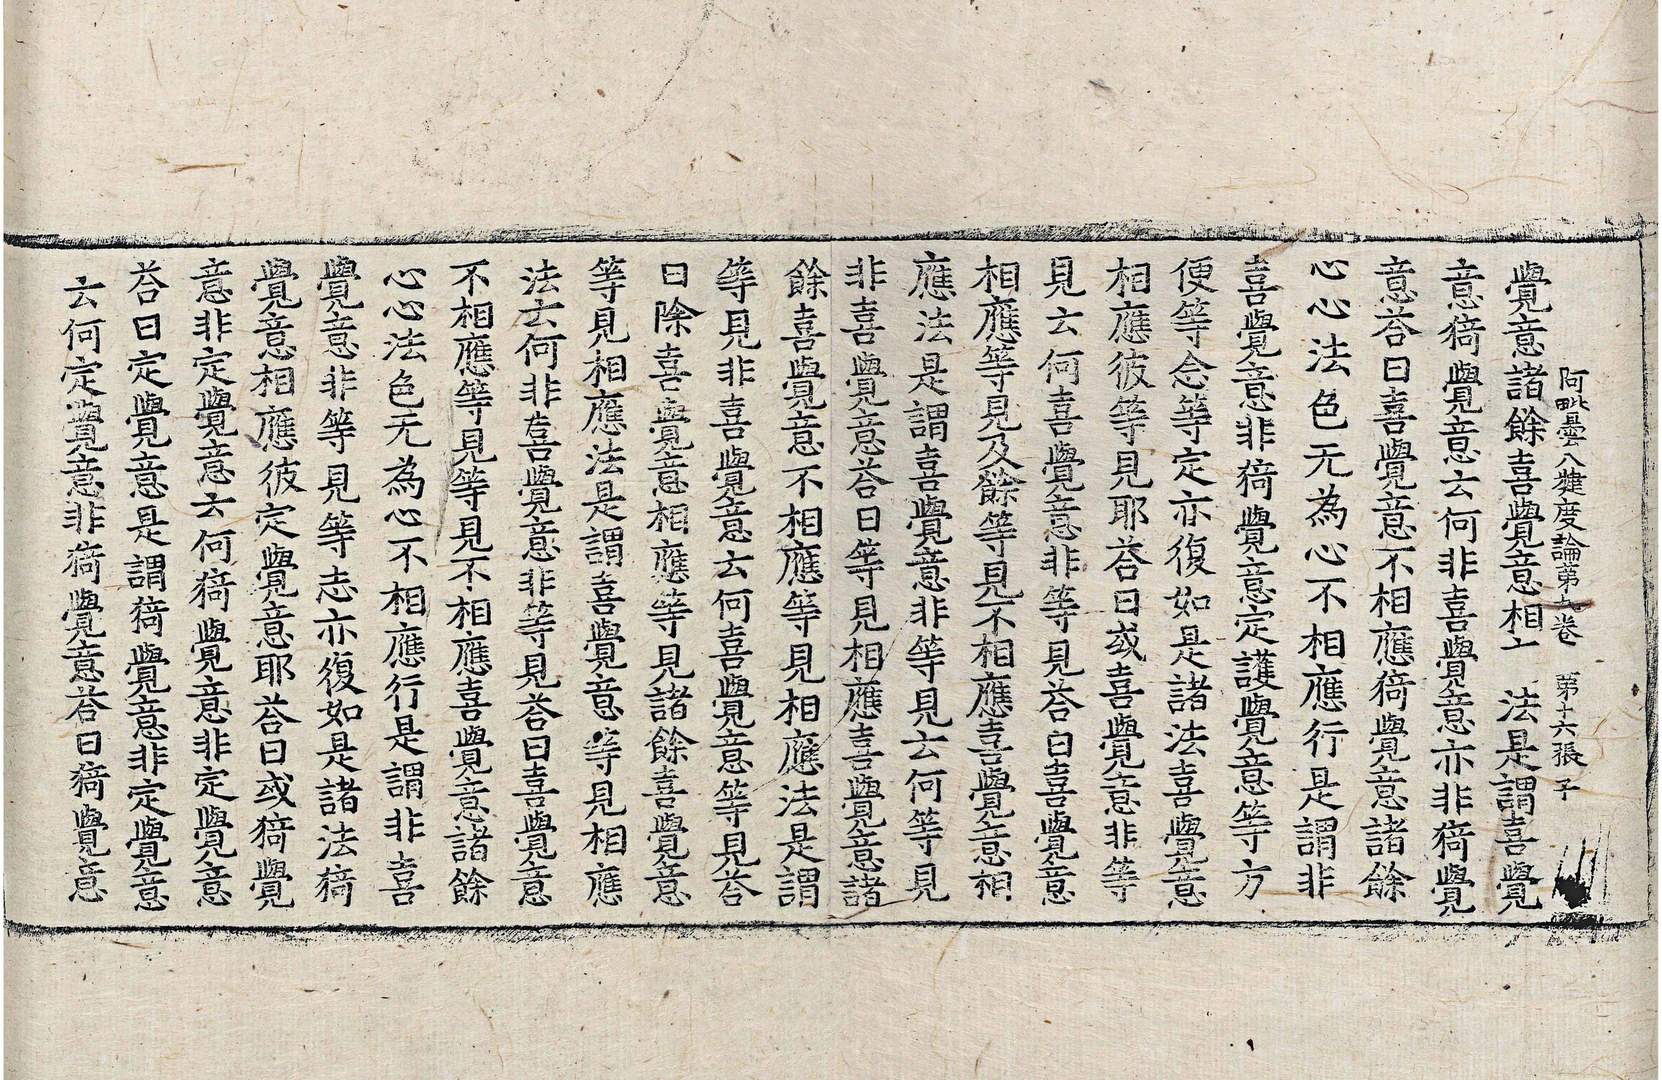 阿毗曇八犍度論第 卷 第十六張 子
覺意諸餘喜覺意相 法是謂喜覺
意猗覺意云何非喜覺意亦非猗覺
意荅曰喜覺意不相應猗覺意諸餘
心心法色无為心不相應行是謂非
喜覺意非猗覺意定護覺意等方
便等念等定亦復如是諸法喜覺意
相應彼等見耶荅曰或喜覺意非等
見云何喜覺意非等見荅曰喜覺意
相應等見及餘等見不相應喜覺意相
應法是謂喜覺意非等見云何等見
非喜覺意荅曰等見相應喜覺意諸
餘喜覺意不相應等見相應法是謂
等見非喜覺意云何喜覺意等見荅
曰除喜覺意相應等見諸餘喜覺意
等見相應法是謂喜覺意等見相應
法云何非喜覺意非等見荅曰喜覺意
不相應等見等見不相應喜覺意諸餘
心心法色无為心不相應行是謂非喜
覺意非等見等志亦復如是諸法猗
覺意相應彼定覺意耶荅曰或猗覺
意非定覺意云何猗覺意非定覺意
荅曰定覺意是謂猗覺意非定覺意
云何定覺意非猗覺意荅曰猗覺意